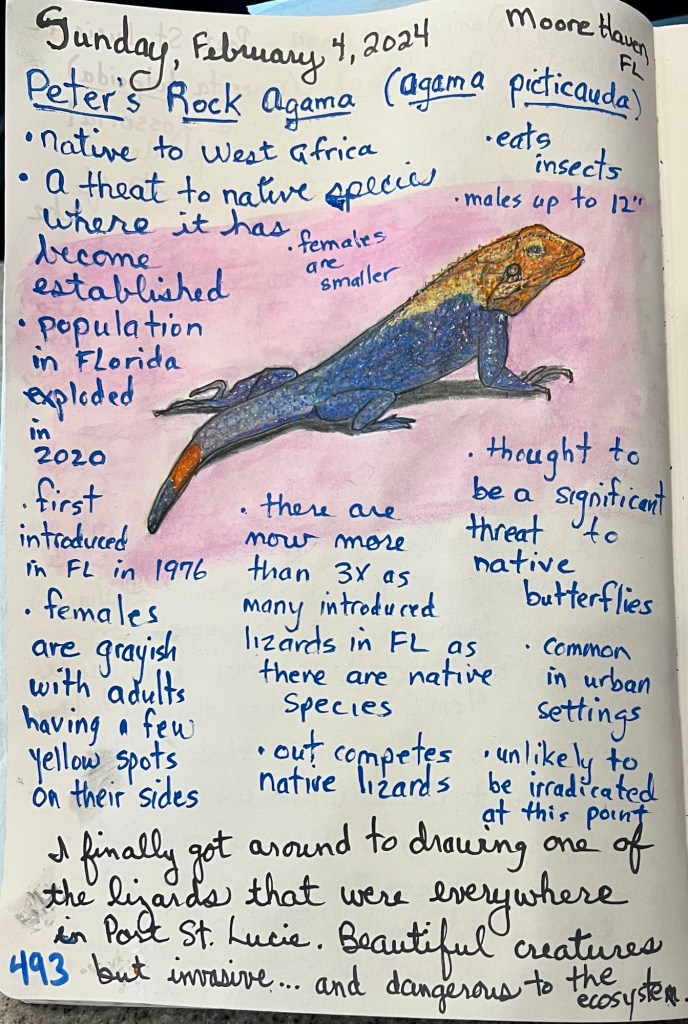 Sunday, February 4, 2024
Moore Haven,
FL
Peter's Rock Agama (agama picticauda)
• native to West Africa
• A theat to native species
where it has
become
established
• population
in Florida
exploded
in
2020
• first
introduced
in FL in 1976
• females
are grayish
with adults
having a few
yellow spots
on their sides
• eats
insects
• males up to 12"
• females
are
smaller
• there are
now more
than 3X as
many introduced
lizards in FL as
there are native
species
• out competes
native lizards
• thought to
be a significant
threat to
native
butterflies
• common
in urban
settings
• unlikely to
be irradicated
at this point
I finally got around to drawing one of
the lizards that were everywhere
in Port St. Lucie. Beautiful creatures
but invasive... and dangerous to the
ecosystem.
493